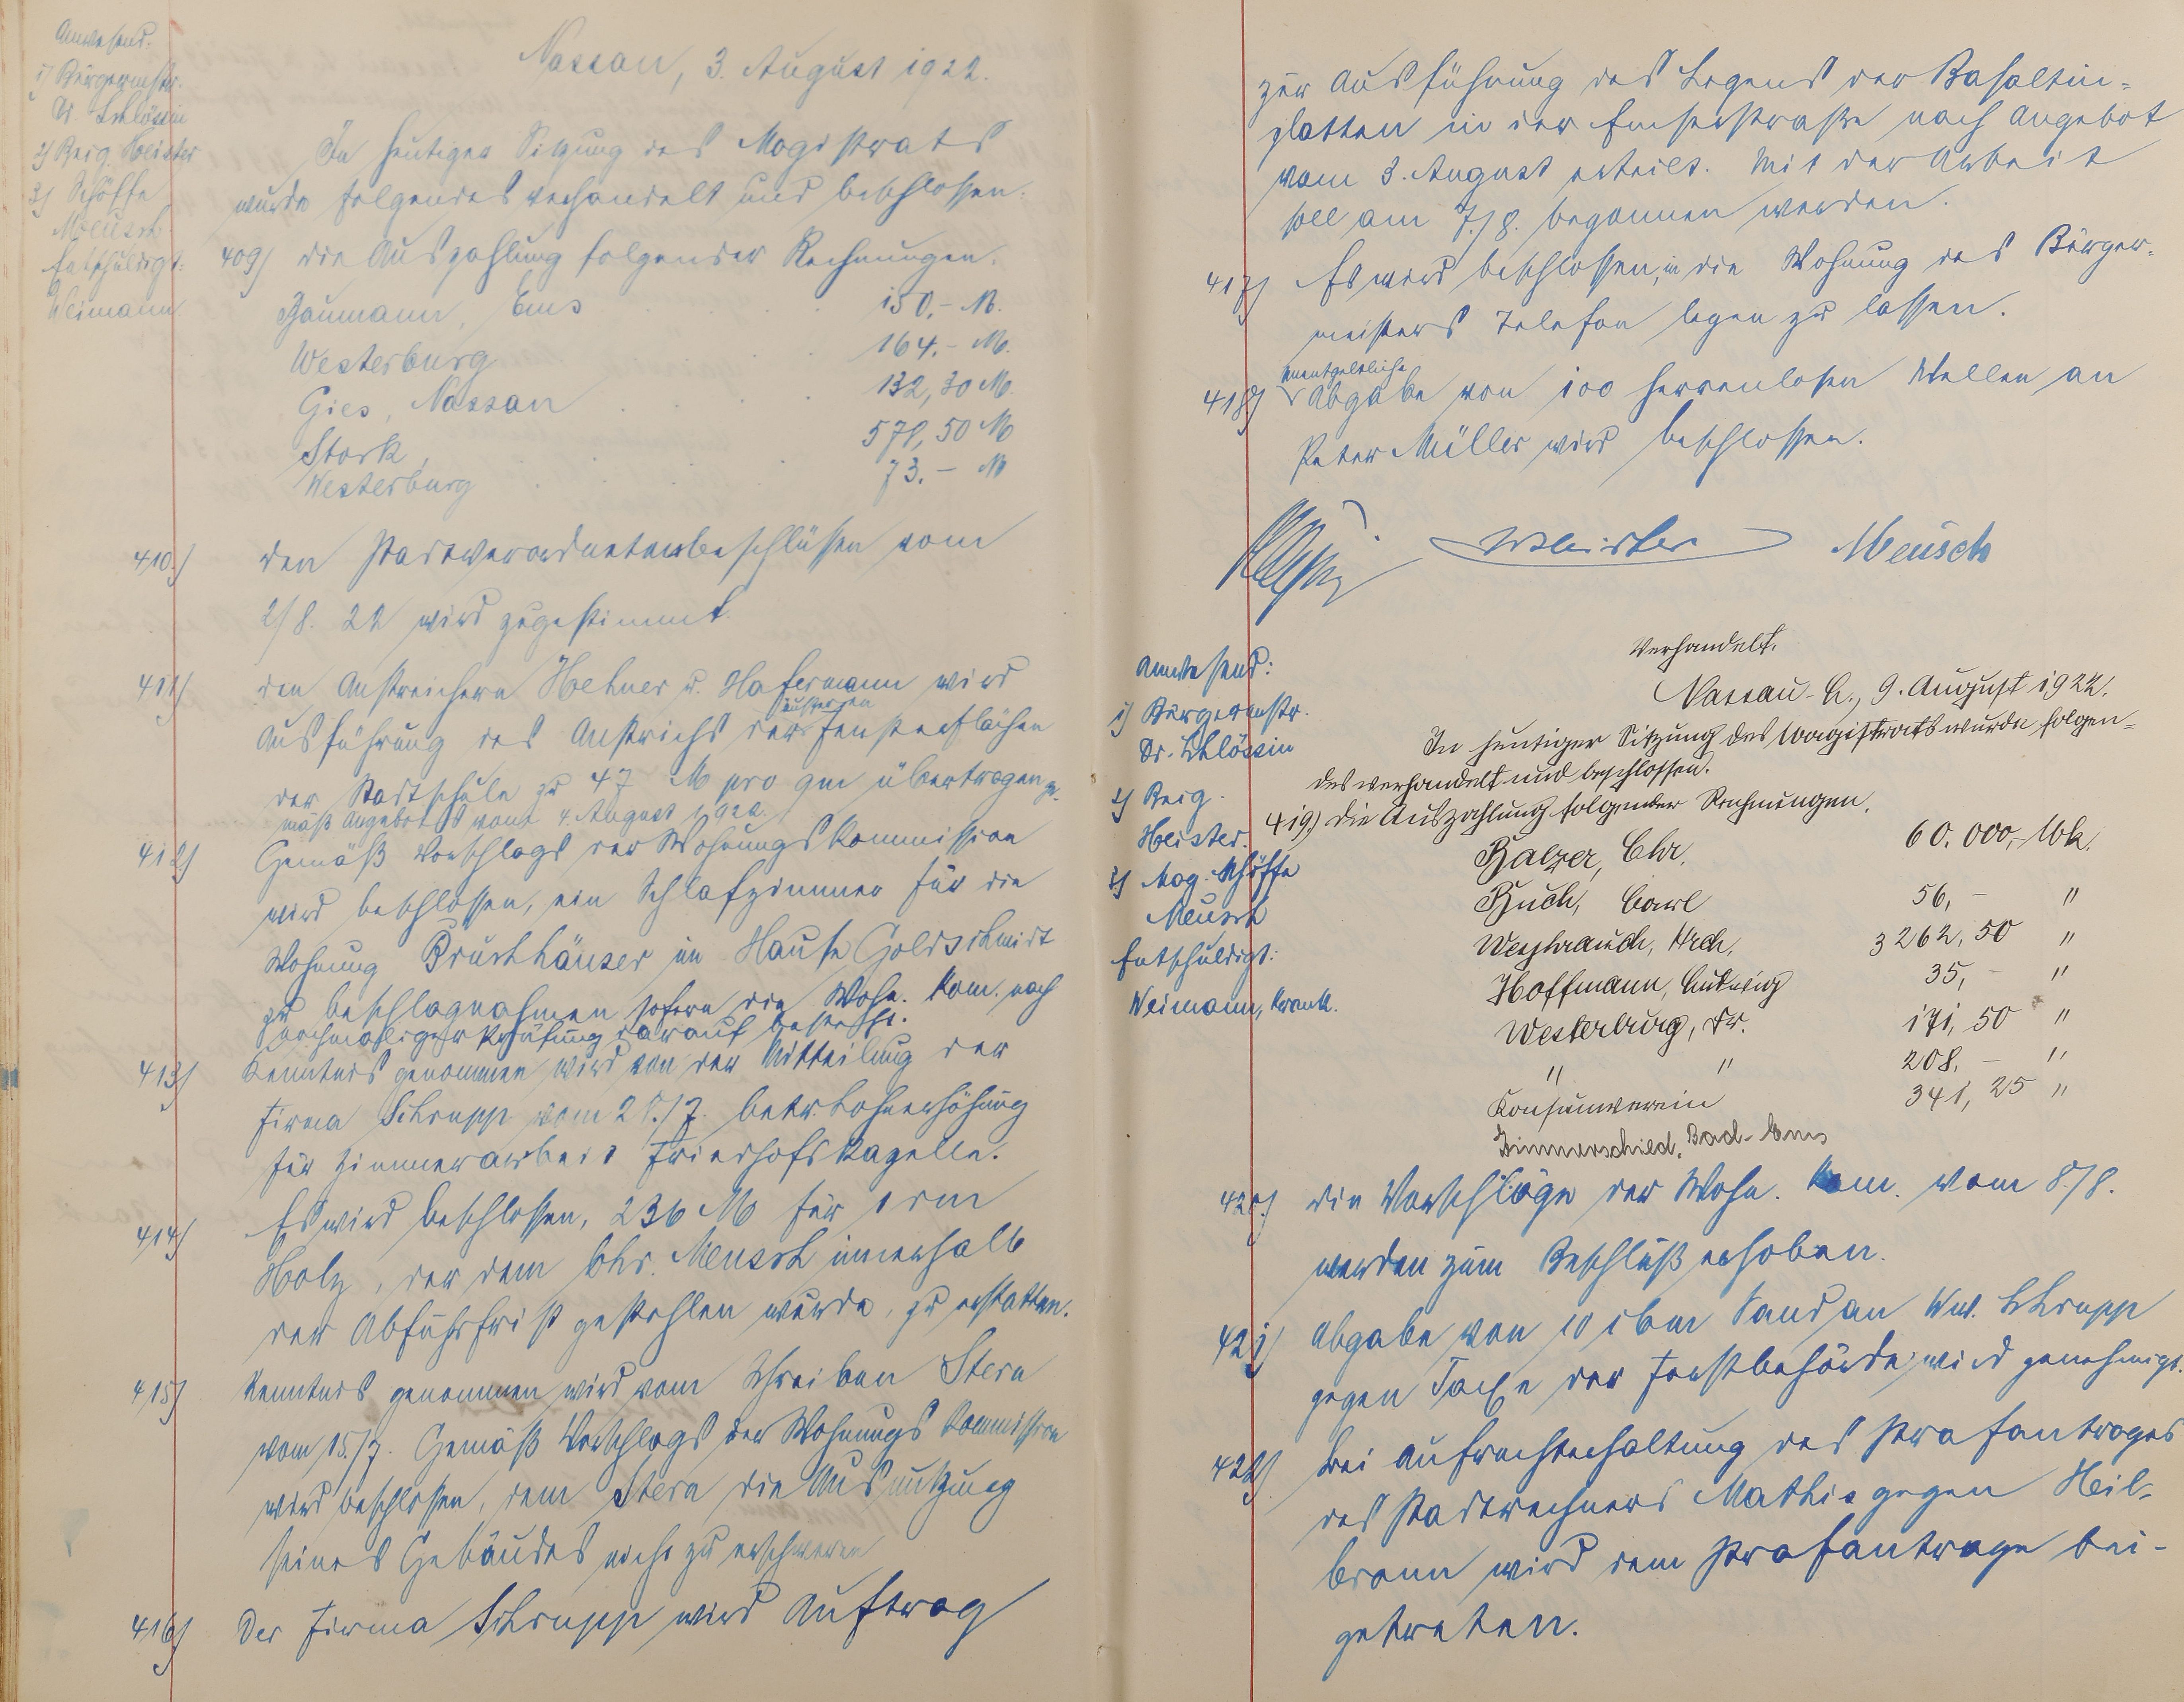 Anwesend:
1) Bürgermstr.
Dr. Schlössin
2) Beig. Heister
3) Schöffe
Meusch
Entschuldigt:
Weimann
Nassau, 3. August 1922.
In heutiger Sitzung des Magistrats
wurde folgendes verhandelt und beschlossen:
409) die Auszahlung folgender Rechnungen.
Baumann, Ems 150.- M.
Westerburg 164.- M.
Gies, Nassau 132,30 M.
Stork, 578,50 M
Westerburg 73.- M
410.) den Stadtverordnetenbeschlüssen vom
2/8. 22 wird zugestimmt.
411) den Anstreichern Hehner u. Hafermann wird
Ausführung des Anstrichs der äusseren Fensterflächen
der Stadtschule zu 47 M pro qm übertragen ge-
mäß Angebots vom 4. August 1922.
412) Gemäß Vorschlags der Wohnungskommission
wird beschlossen, ein Schlafzimmer für die
Wohnung Bruchhäuser im Hause Goldschmidt
zu beschlagnahmen sofern die Wohn. Kom. nach
nochmaliger Prüfung darauf besteht.
413) Kenntnis genommen wird von der Mitteilung der
Firma Schrupp vom 28./7. betr. Lohnerhöhung
für Zimmerarbeit Friedhofskapelle.
414) Es wird beschlossen, 236 M für 1 rm
Holz, der dem Chr. Meusch innerhalb
der Abfuhrfrist gestohlen wurde, zu erstatten.
415) Kenntnis genommen wird vom Schreiben Stern
vom 15./7. Gemäß Vorschlags der Wohnungskommission
wird beschlossen, dem Stern die Ausnutzung
seines Gebäudes nicht zu erschweren
416) Der Firma Schrupp wird Auftrag
zur Ausführung des Legens der Basaltin-
platten in der Emserstrasse nach Angebot
vom 3. August erteilt. Mit der Arbeit
soll am 7./8. begonnen werden.
417) Es wird beschlossen, in die Wohnung des Bürger-
meisters Telefon legen zu lassen.
418) unentgeltliche Abgabe von 100 herrenlosen Wellen an
Peter Müller wird beschlossen.
WHeister Meusch
Verhandelt.
Nassau-L., 9. August 1922.
Anwesend:
1) Bürgermstr.
Dr. Schlössin
2) Beig.
Heister.
3) Mag. Schöffe
Meusch
Entschuldigt:
Weimann, krank.
In heutiger Sitzung des Magistrats wurde folgen-
des verhandelt und beschlossen.
419.) Die Auszahlung folgender Rechnungen.
Balzer, Chr. 60.000,- Mk.
Buch, Carl 56,- "
Weyhrauch, Hrch. 3262,50 "
Hoffmann, Ludwig 35,- "
Westerburg, Fr. 171,50 "
" " 208,- "
Konsumverein 341,25 "
Zimmerschied, Bad-Ems
420.) die Vorschläge der Wohn. Kom. vom 8./8.
werden zum Beschluß erhoben.
421) Abgabe von 10 cbm Sand an Ww. Schrupp
gegen Taxe der Forstbehörde wird genehmigt.
422) Bei Aufrechterhaltung des Strafantrages
des Stadtrechners Mathis gegen Heil-
bronn wird dem Strafantrage bei-
getreten.